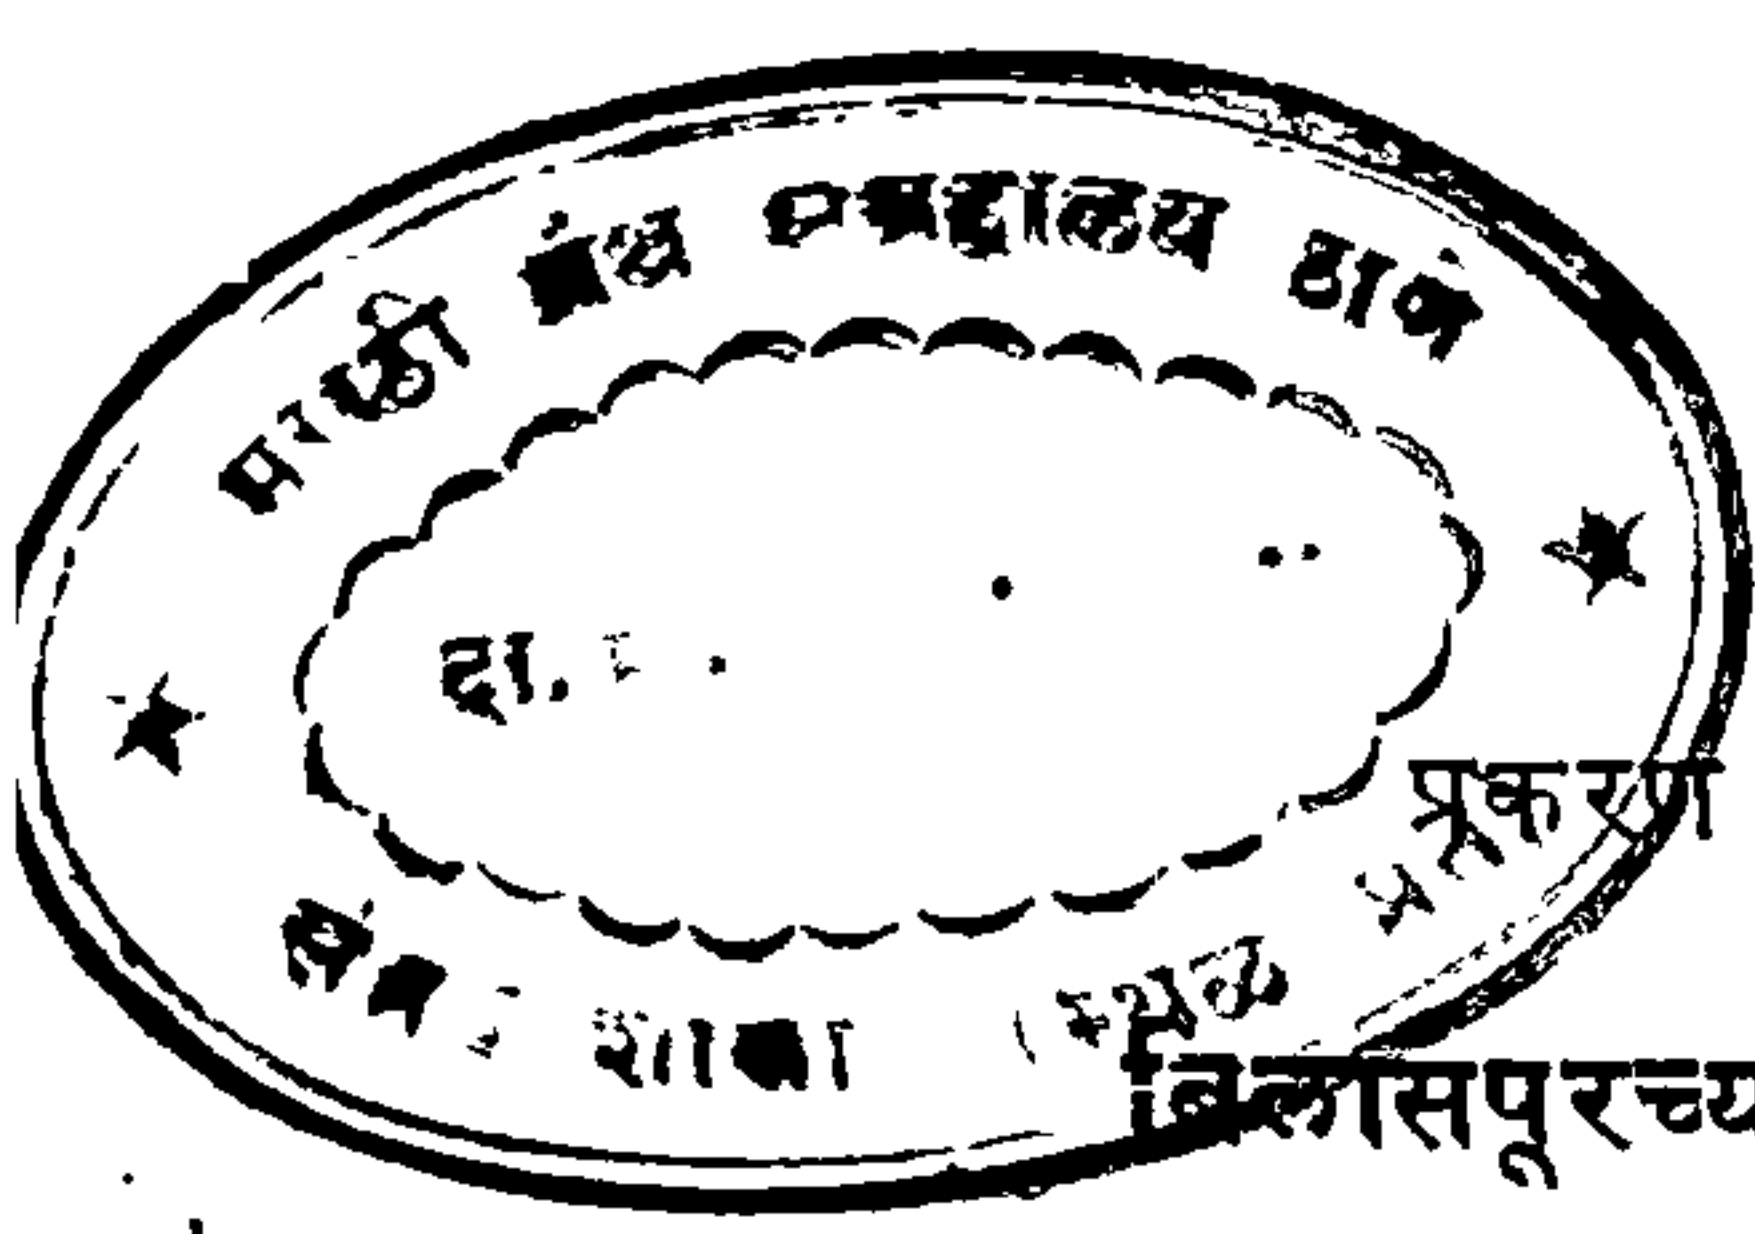 मराठी ग्रंथ संग्रहालय ठाणे
दा.
शाखा
(स्थळ प्रत
प्रकरण
बिलासपूरच्य